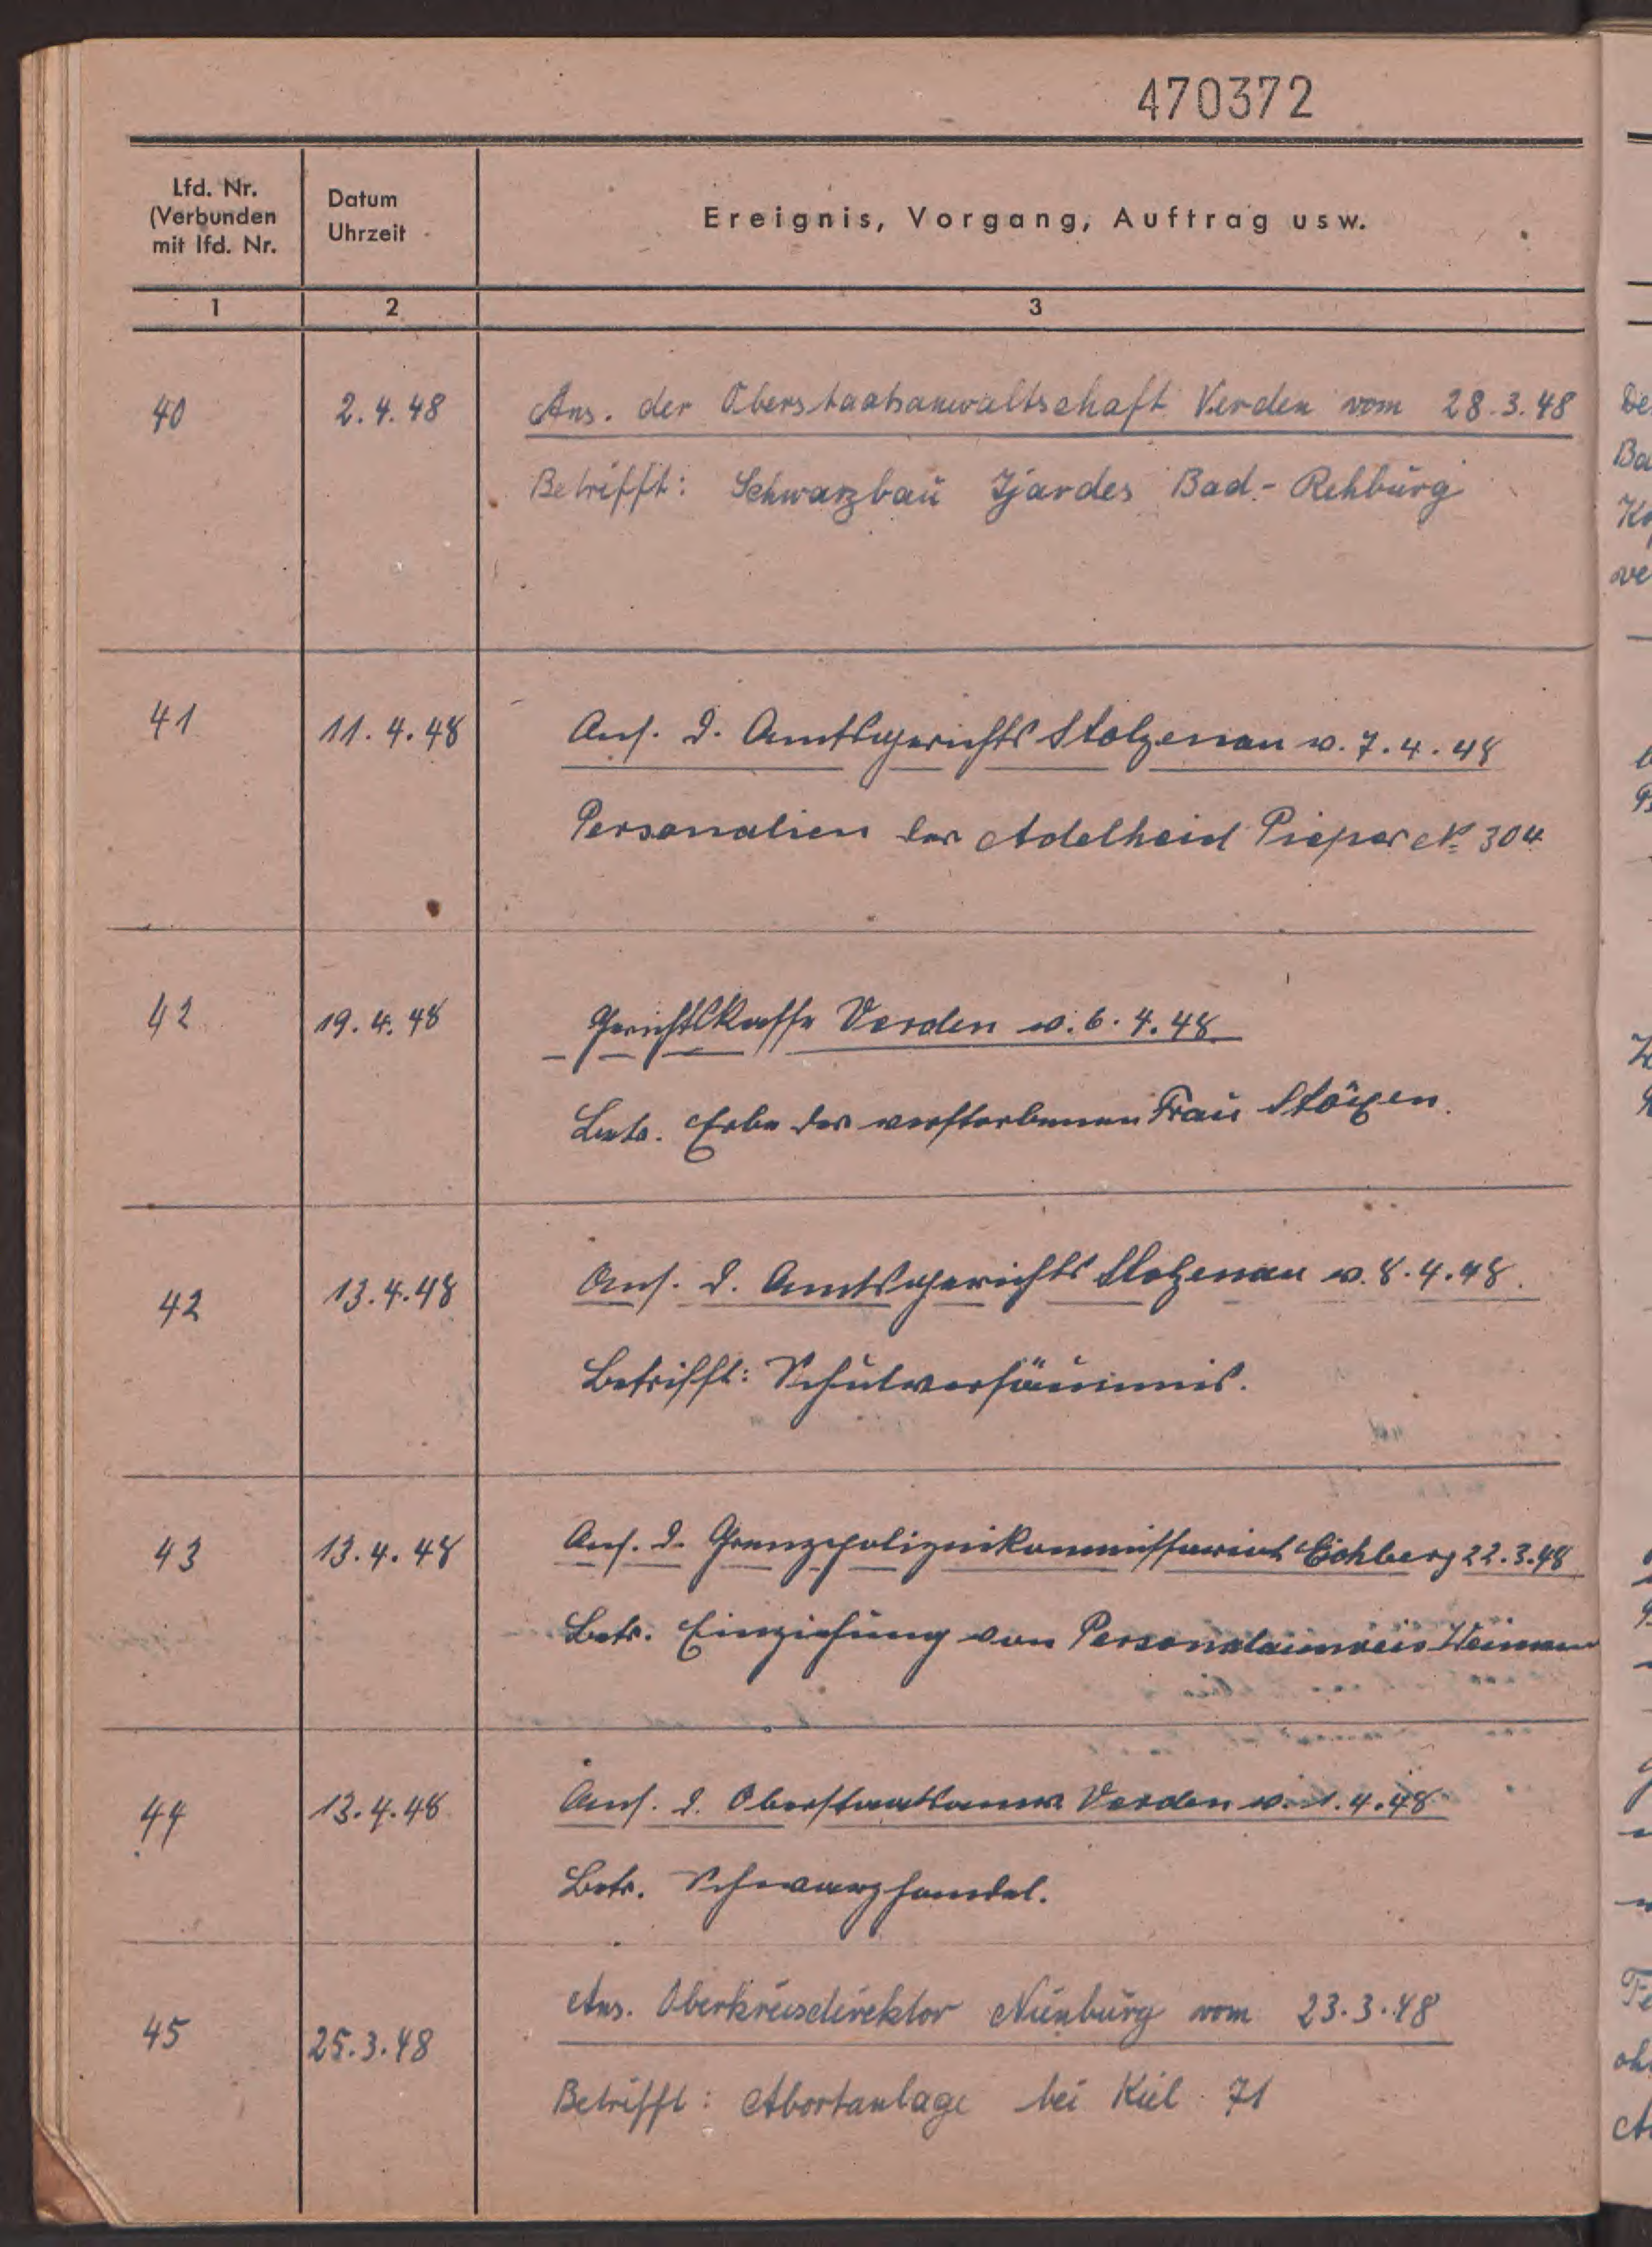 470372
Lfd. Nr.
(Verbunden
mit lfd. Nr.
Datum
Uhrzeit
Ereignis, Vorgang, Auftrag usw.
1 2 3
40 2.4.48 Ans. der Oberstaatsanwaltschaft Verden vom 28.3.48
Betrifft: Schwarzbau Tjardes Bad-Rehburg
41 11.4.48 Ans. d. Amtsgerichts Stolzenau v. 7.4.48
Personalien der Adelheid Pieper № 304
42 19.4.48 Gerichtskasse Verden v. 6.4.48
Betr. Erbe der verstorbenen Frau
42 13.4.48 Ans. d. Amtsgerichts Stolzenau v. 8.4.48.
Betrifft: Schulversäumnis.
43 13.4.48 Ans. d. Grenzpolizeikommissariat Eichberg 22.3.48
Betr. Einziehung von Personalausweis
44 13.4.48 Ans. d. Oberstaatsanw. Verden v. 1.4.48
Betr. Schwarzhandel.
45 25.3.48 Ans. Oberkreisdirektor Nienburg vom 23.3.48
Betrifft: Abortanlage bei Kiel 71